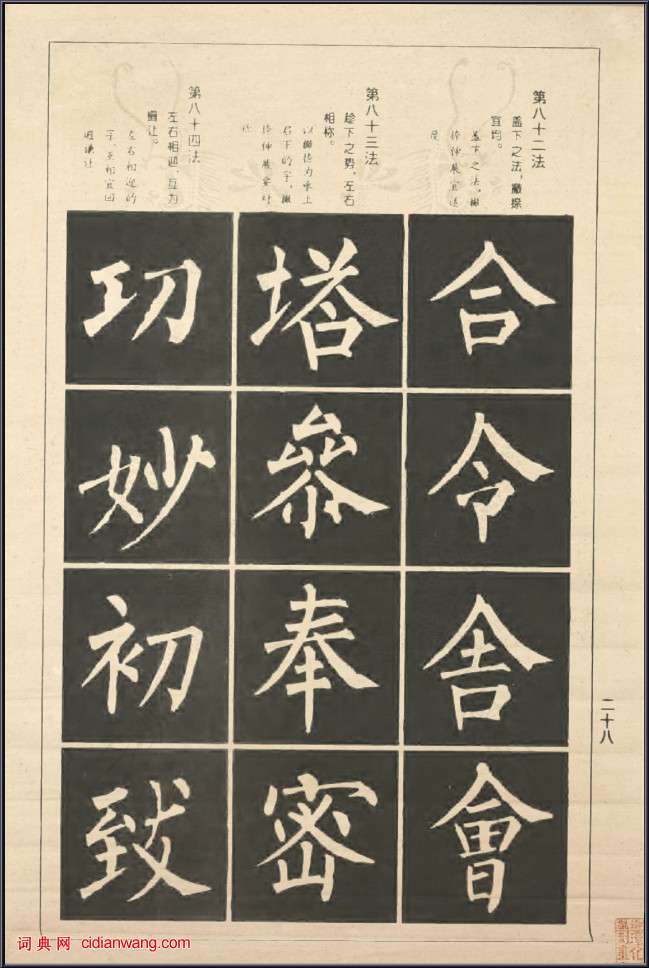 第八十二法
盖下之法，撇捺
宜均。
盖下之法，撇
捺伸展宜适
度
合
令
舍
會
第八十三法
趁下之势，左右
相称。
以撇捺为承上
启下的字，撇
捺伸展要对
称
塔
參
奉
密
第八十四法
左右相迎，互为
揖让。
左右相迎的
字，互相宜回
避谦让
功
妙
初
致
二十八
词典网 cidianwang.com